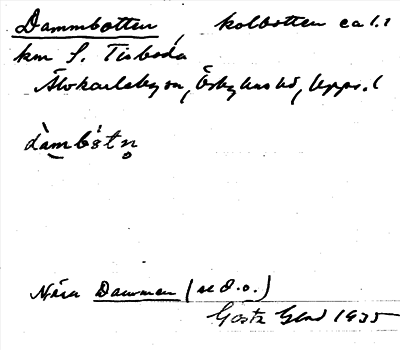 Dammbotten, kolbotten ca 1.1
km S. Tisboda
Älvkarleby sn, Örbyhus hd, Upps. l
dàmbótn̥
Nära Dammen (se d.o.)
Gösta Glad 1935